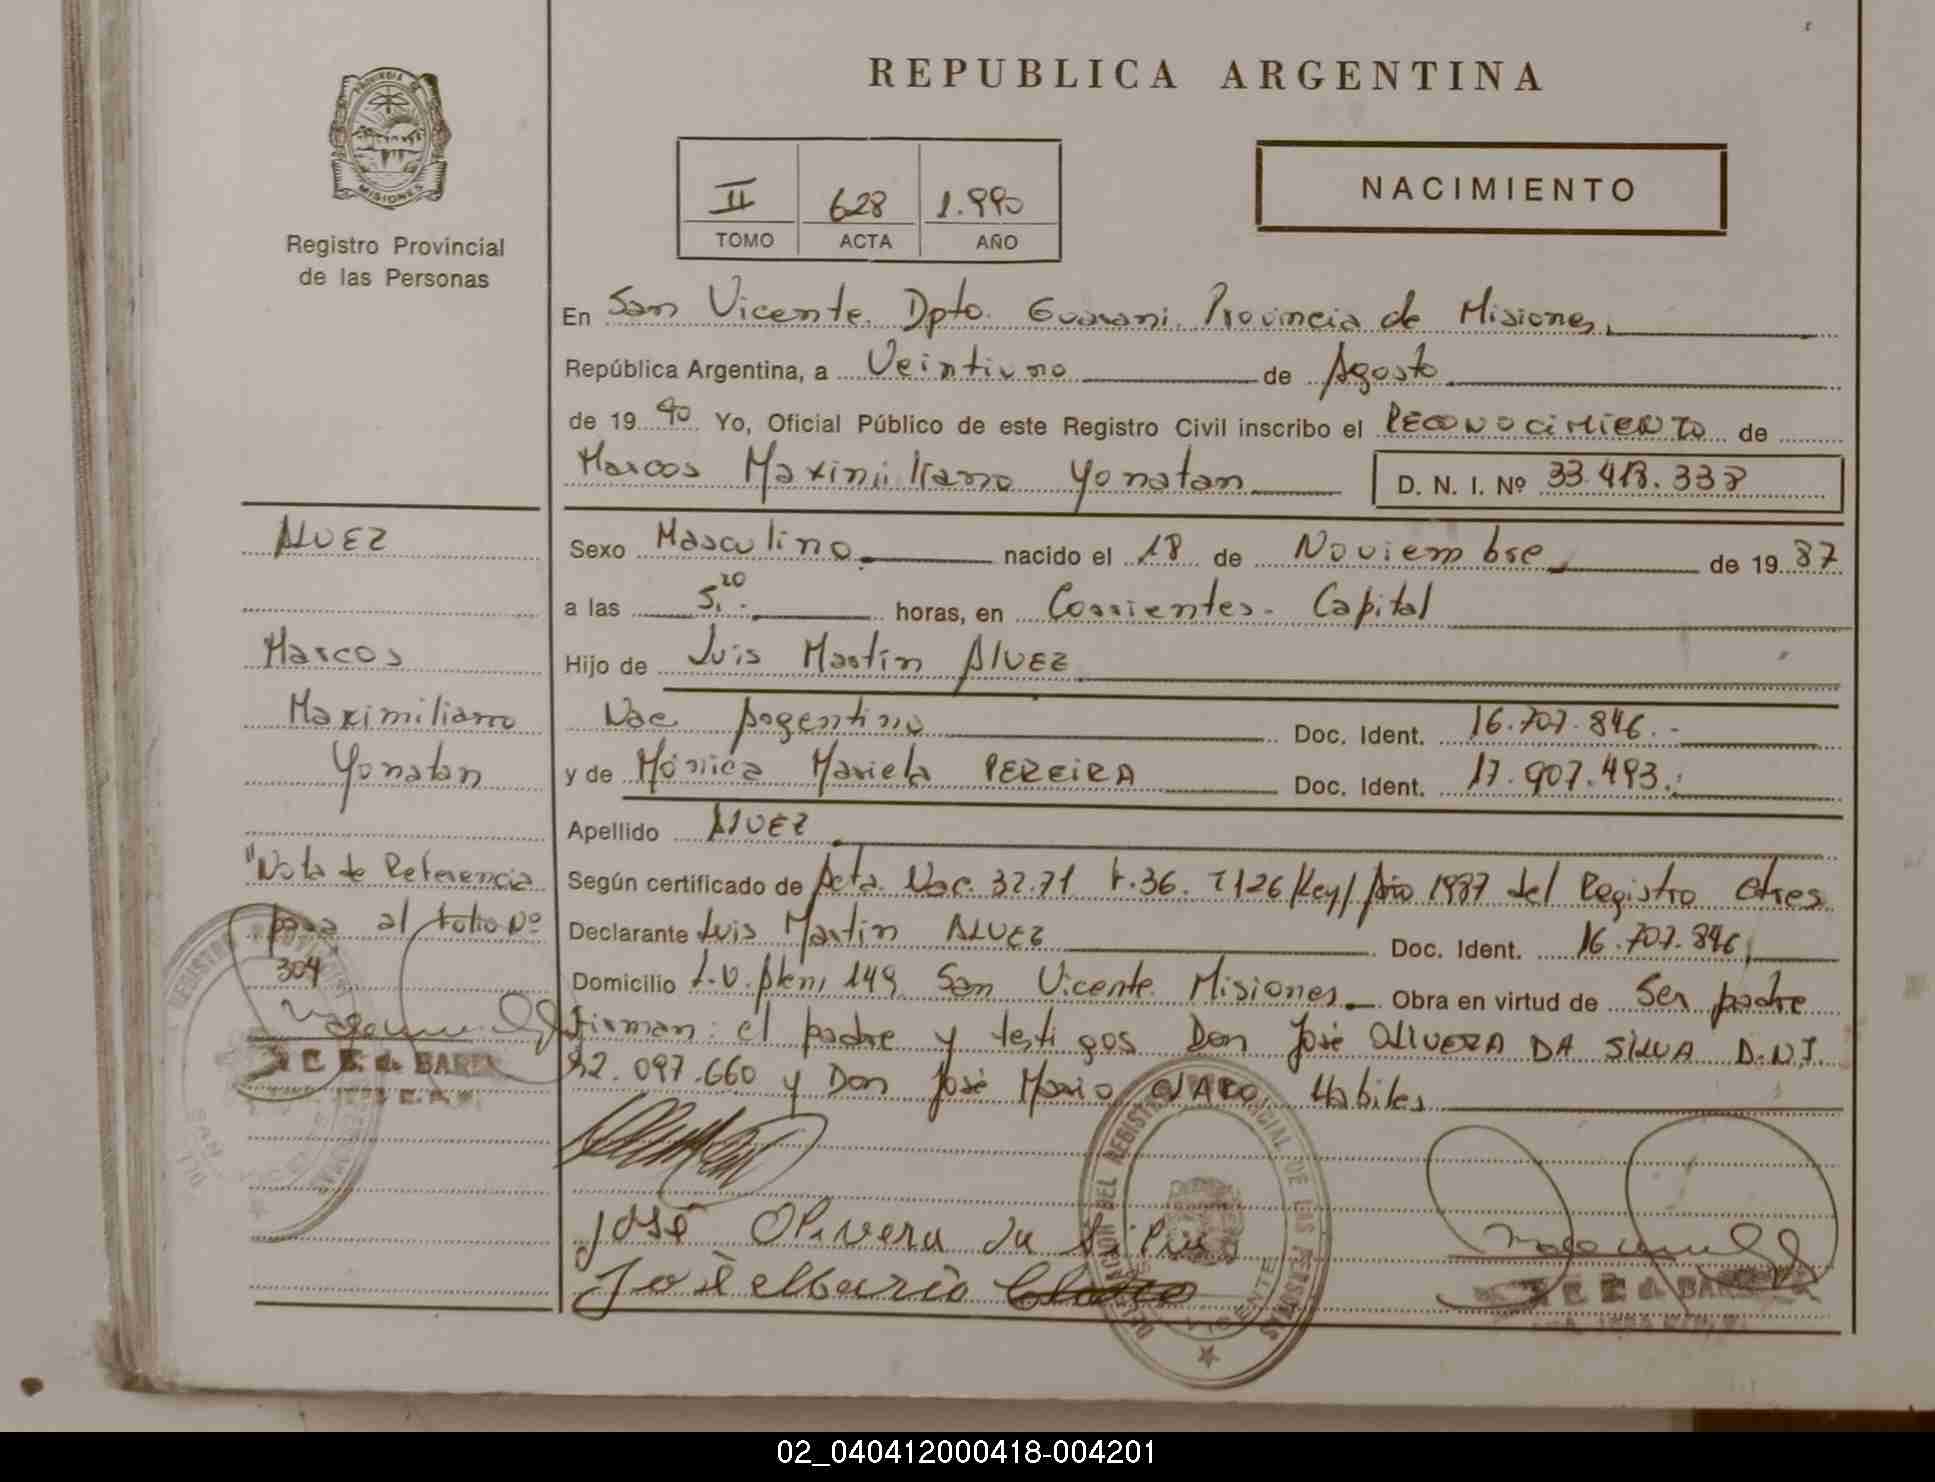 REPUBLICA ARGENTINA
PROVINCIA DE
MISIONES
Registro Provincial
de las Personas
II 628 1.990
TOMO ACTA AÑO
NACIMIENTO
En San Vicente. Dpto. Guarani. Provincia de Misiones.
República Argentina, a Veintiuno de Agosto
de 1990 Yo, Oficial Público de este Registro Civil inscribo el RECONOCIMIENTO de
Marcos Maximiliano Yonatan D. N. I. Nº 33.418.338
Sexo Masculino nacido el 18 de Noviembre de 1987
a las 5,20 horas, en Corrientes - Capital
Hijo de Luis Martín Alvez
Nac Argentino Doc. Ident. 16.707.846.-
y de Mónica Mariela PEREIRA Doc. Ident. 17.907.493.-
Apellido Alvez
Según certificado de Acta Nac. 32.71 t.36. Año 1987 del Registro Ctres
Declarante Luis Martín ALVEZ Doc. Ident. 16.707.846
Domicilio 149 San Vicente Misiones Obra en virtud de Ser padre
Firman: el padre y testigos Don José OLIVERA DA SILVA D.N.I.
92.097.660 y Don José Mario Habiles
José Olivera da Silva
José Mario
ALVEZ
Marcos
Maximiliano
Yonatan
"Nota de Referencia
pasa al folio Nº
304
DELEGACION DEL REGISTRO PROVINCIAL DE LAS PERSONAS
SAN VICENTE
02_040412000418-004201